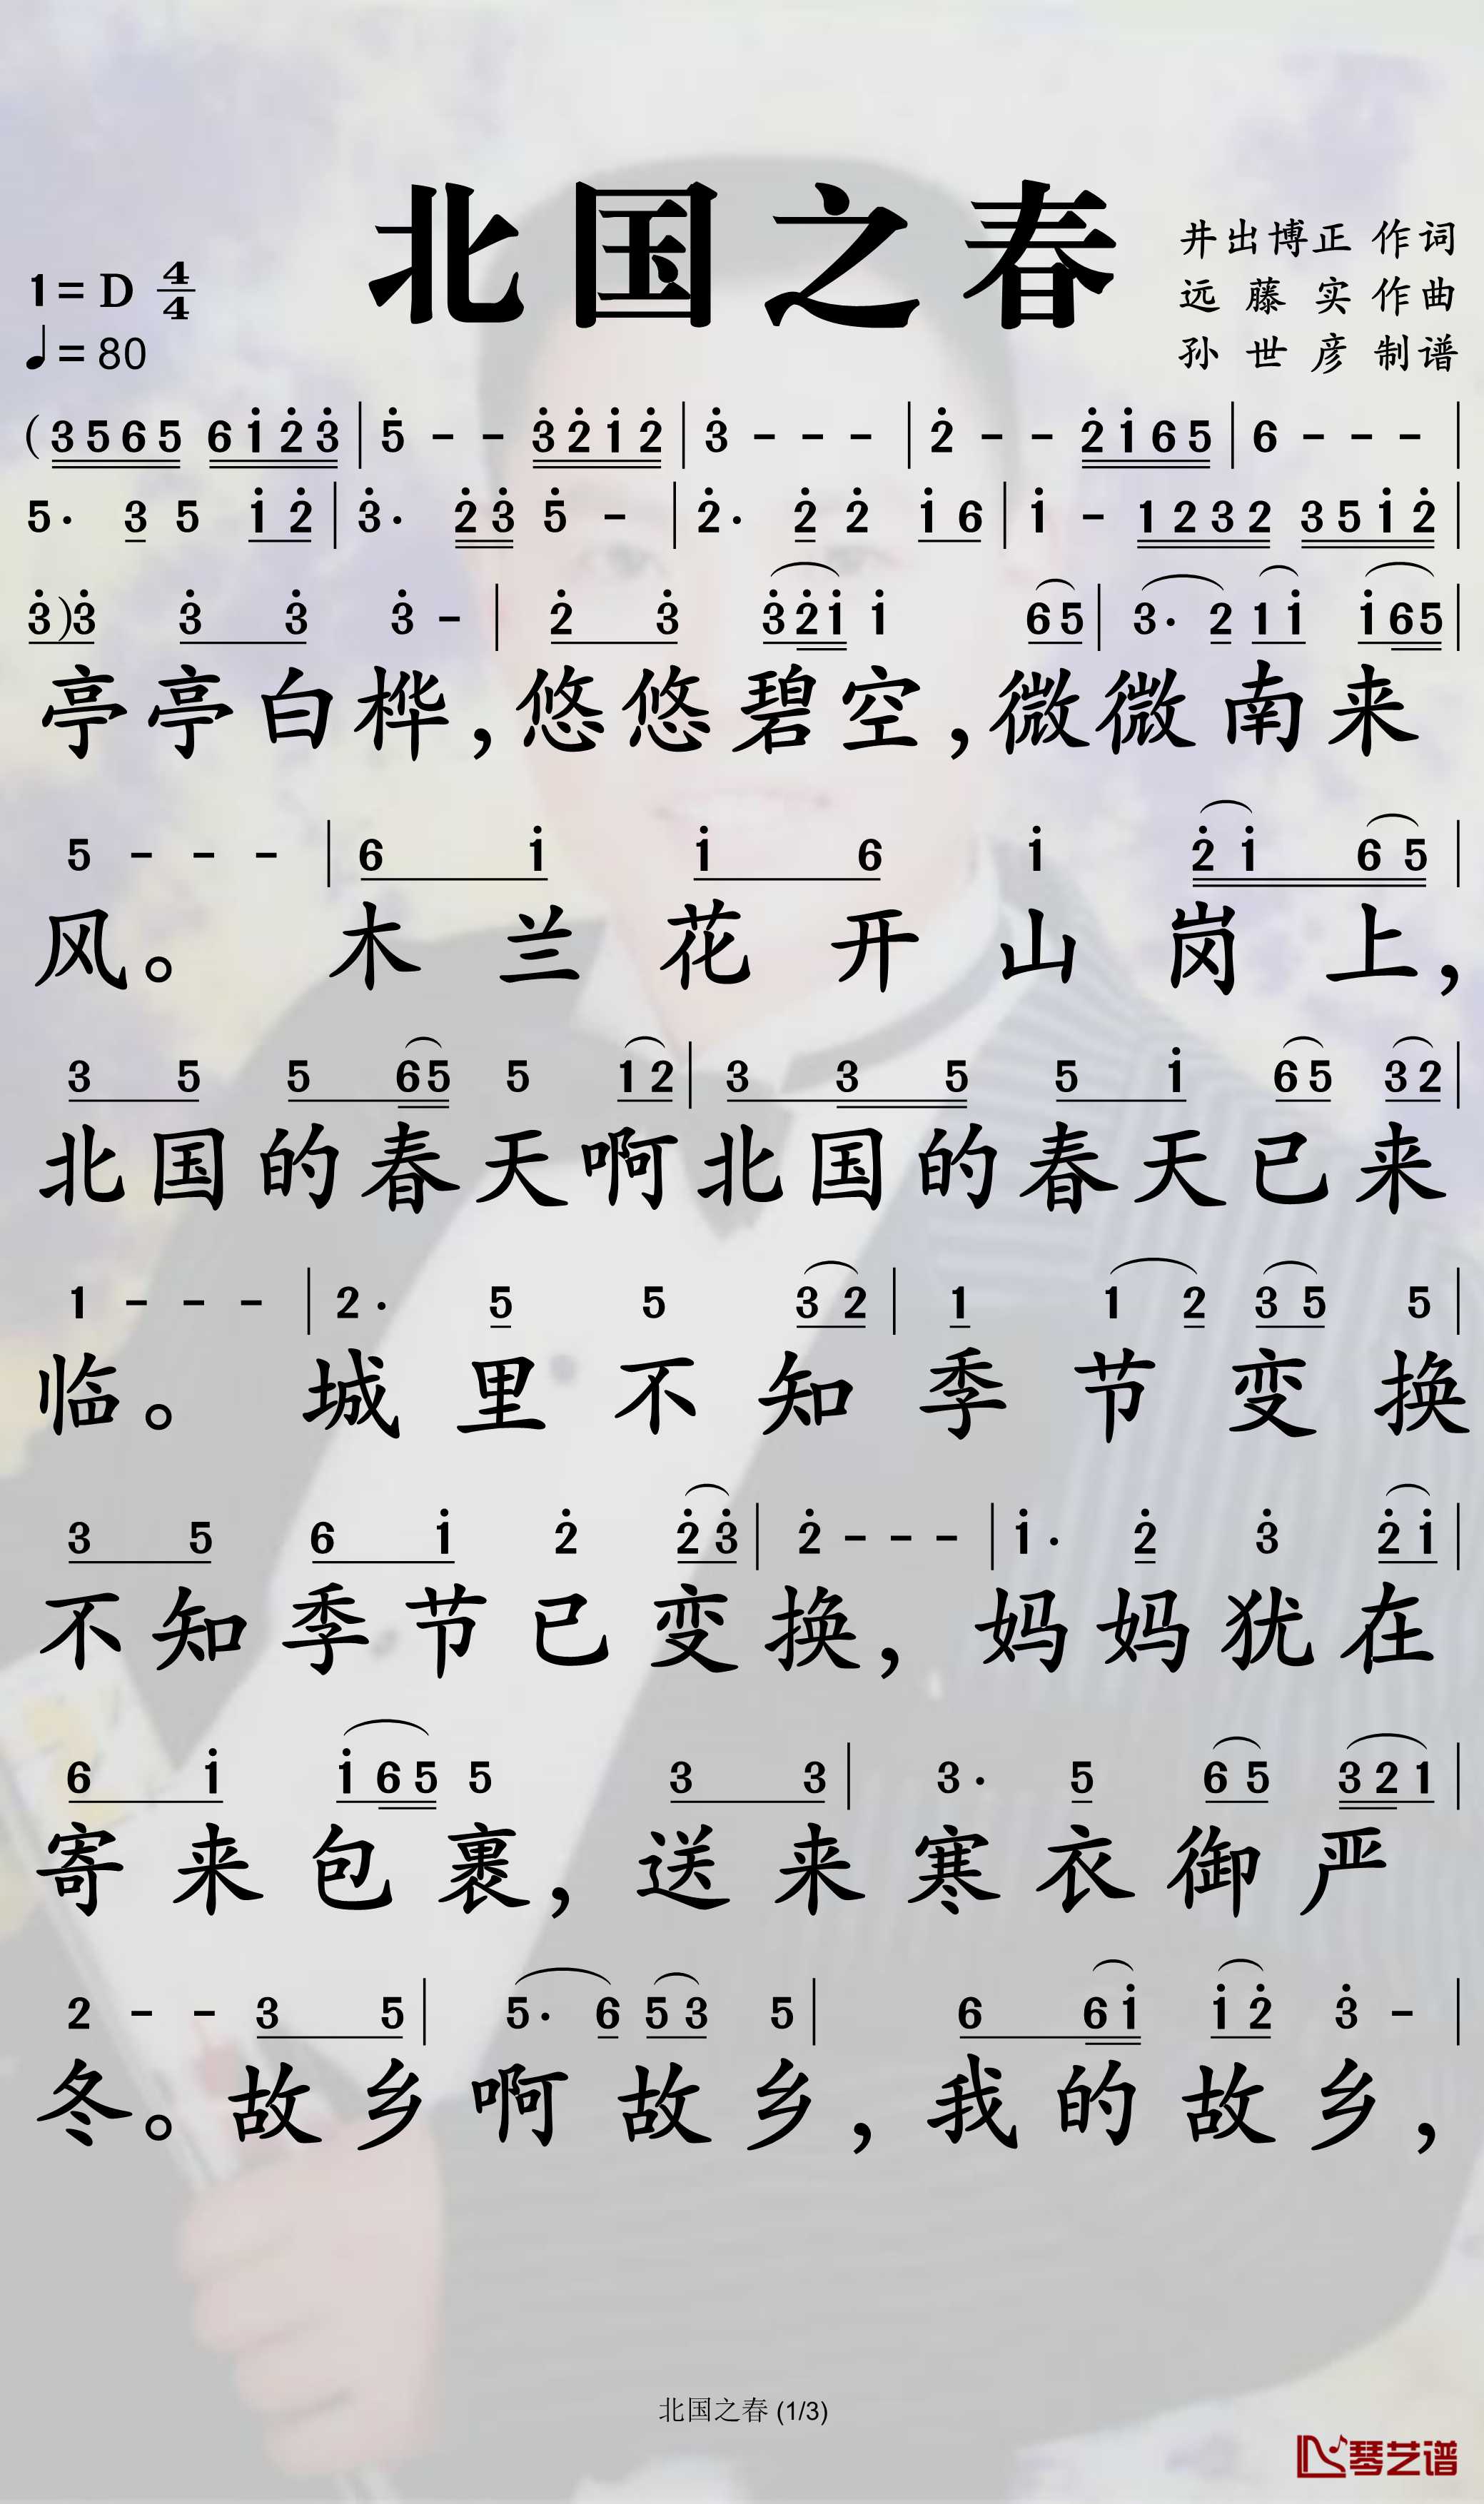 北国之春
1=D 4/4
♩=80
井出博正 作词
远藤实 作曲
孙世彦 制谱
(3 5 6 5 6 1̇ 2̇ 3̇ | 5̇ - - 3̇ 2̇ 1̇ 2̇ | 3̇ - - - | 2̇ - - 2̇ 1̇ 6 5 | 6 - - - |
5· 3 5 1̇ 2̇ | 3̇· 2̇ 3̇ 5̇ - | 2̇· 2̇ 2̇ 1̇ 6 | 1̇ - 1 2 3 2 3 5 1̇ 2̇ |
3̇) 3̇ 3̇ 3̇ 3̇ - | 2̇ 3̇ 3̇ 2̇ 1̇ 1̇ 6 5 | 3· 2 1 1̇ 1̇ 6 5 |
亭亭白桦,悠悠碧空,微微南来
5 - - - | 6 1̇ 1̇ 6 1̇ 2̇ 1̇ 6 5 |
风。木兰花开山岗上,
3 5 5 6 5 5 1 2 | 3 3 5 5 1̇ 6 5 3 2 |
北国的春天啊北国的春天已来
1 - - - | 2· 5 5 3 2 | 1 1 2 3 5 5 |
临。城里不知季节变换
3 5 6 1̇ 2̇ 2̇ 3̇ | 2̇ - - - | 1̇· 2̇ 3̇ 2̇ 1̇ |
不知季节已变换,妈妈犹在
6 1̇ 1̇ 6 5 5 3 3 | 3· 5 6 5 3 2 1 |
寄来包裹,送来寒衣御严
2 - - 3 5 | 5· 6 5 3 5 | 6 6 1̇ 1̇ 2̇ 3̇ - |
冬。故乡啊故乡,我的故乡,
北国之春 (1/3)
琴艺谱